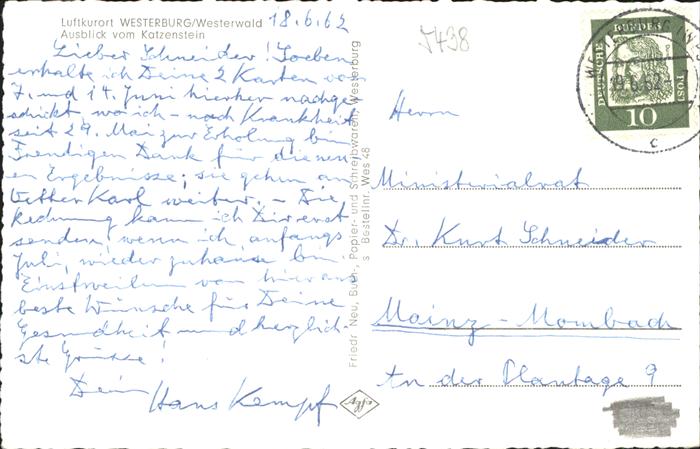 Luftkurort WESTERBURG/Westerwald
Ausblick vom Katzenstein
18.6.62
Lieber Schneider! Soeben
erhalte ich Deine 2 Karten vom
7. und 14. Juni hierher nachge-
schickt, wo ich - nach Krankheit
seit 29. Mai zur Erholung bin
Freudigen Dank für die neu-
en Ergebnisse; sie gehen an
Vetter Karl weiter. - Die
Rechnung kann ich Dir erst
senden, wenn ich, anfangs
Juli, wieder zuhause bin
Einstweilen von hier aus
beste Wünsche für Deine
Gesundheit und herzlich-
ste Grüsse!
Dein Hans Kempf
Friedr. Neu, Buch-, Papier- und Schreibwaren, Westerburg
s Bestellnr. Wes 48
Agfa
J438
DEUTSCHE BUNDESPOST
10
18.6.62
c
Herrn
Ministerialrat
Dr. Kurt Schneider
Mainz-Mombach
An der Plantage 9